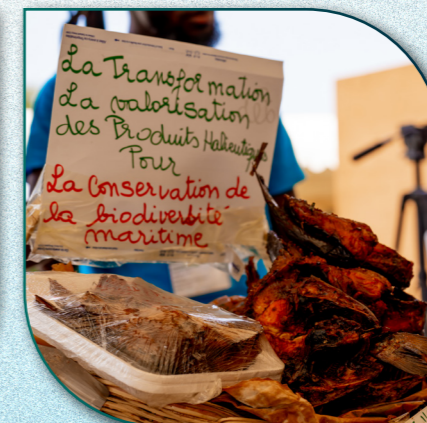 La Transformation
La valorisation
des Produits Halieutiques
Pour
La Conservation de
la biodiversité
maritime